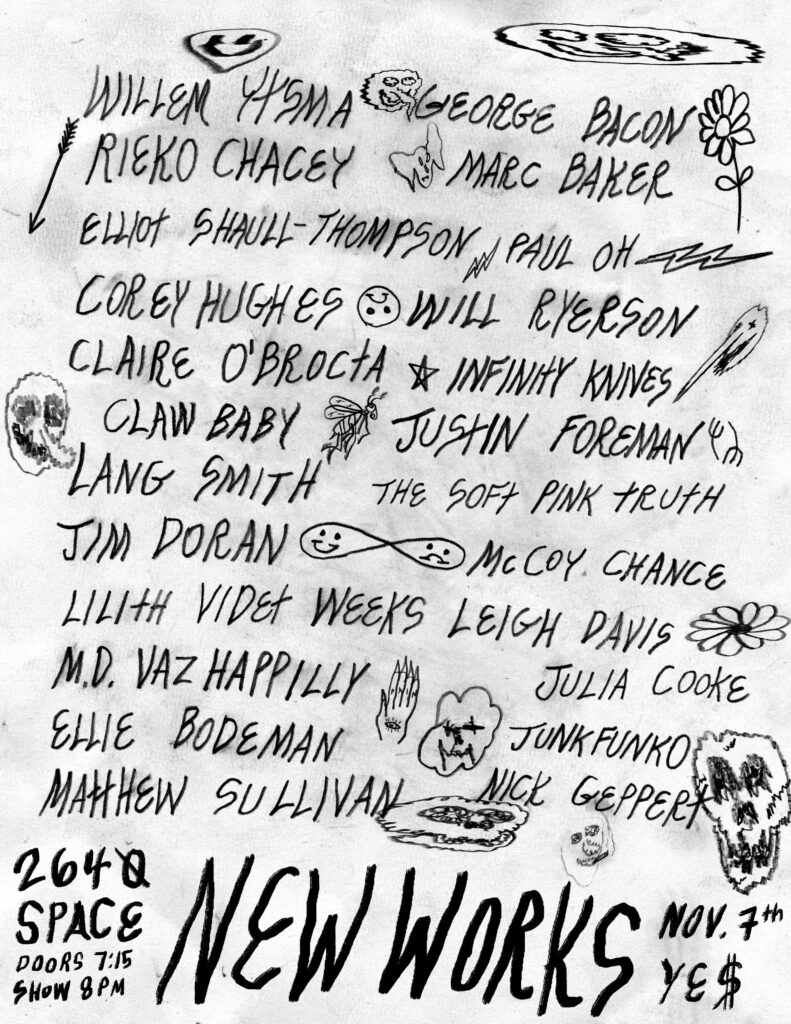 WILLEM YTSMA GEORGE BACON
RIEKO CHACEY MARC BAKER
ELLIOT SHAULL-THOMPSON PAUL OH
COREY HUGHES WILL RYERSON
CLAIRE O'BROCTA INFINITY KNIVES
CLAW BABY JUSTIN FOREMAN
LANG SMITH THE SOFT PINK TRUTH
JIM DORAN McCOY CHANCE
LILITH VIDET WEEKS LEIGH DAVIS
M.D. VAZHAPPILLY JULIA COOKE
ELLIE BODEMAN JUNKFUNKO
MATTHEW SULLIVAN NICK GEPPERT
2640
SPACE
DOORS 7:15
SHOW 8PM
NEW WORKS
NOV. 7th
YE$